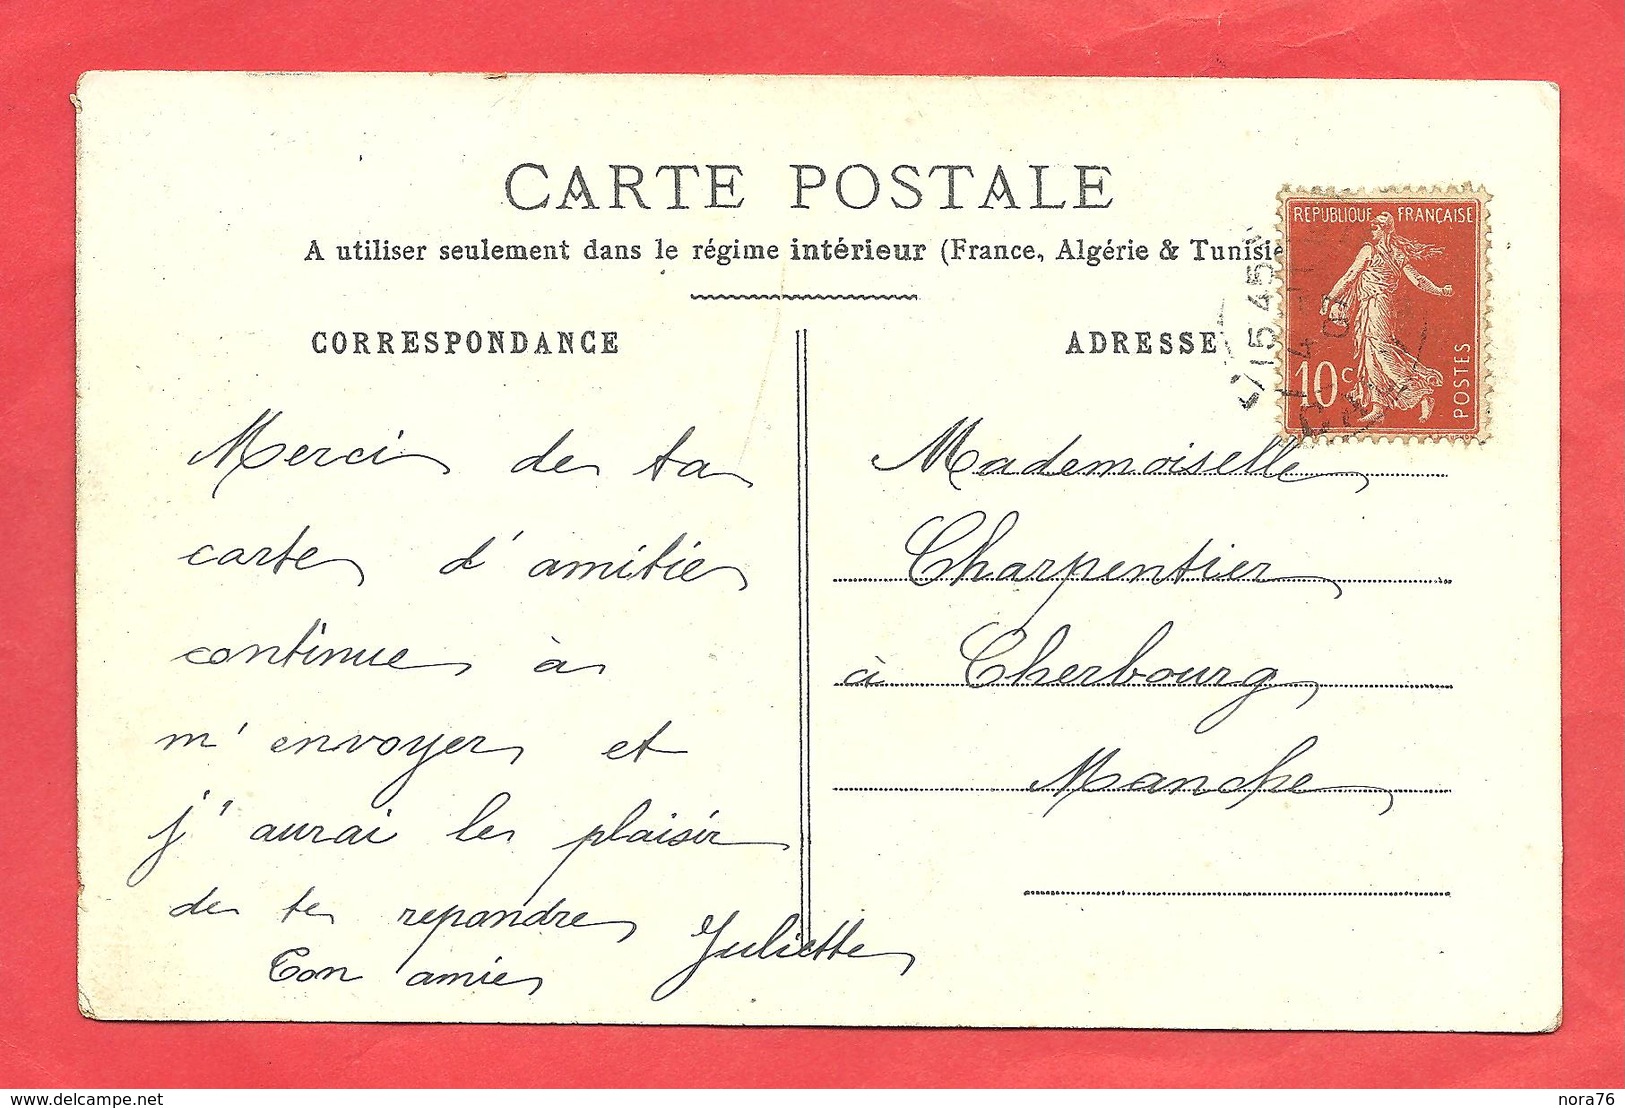 CARTE POSTALE
A utiliser seulement dans le régime intérieur (France, Algérie & Tunisie
CORRESPONDANCE
ADRESSE
REPUBLIQUE FRANÇAISE
10 c
POSTES
15 45
Merci de ta
carte d'amitie
continue à
m'envoyer et
j'aurai le plaisir
de te repondre
Ton amie Juliette
Mademoiselle
Charpentier
à Cherbourg
Manche
delcampe.net
nora76